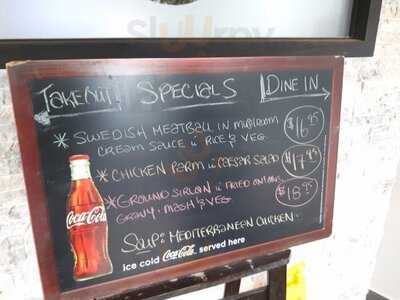 TAKEOUT SPECIALS DINE IN
* SWEDISH MEATBALL IN MUSHROOM $16.95
CREAM SAUCE w RICE & VEG
* CHICKEN PARM w CAESAR SALAD $17.95
* GROUND SIRLOIN w FRIED ONIONS
GRAVY · MASH & VEG
SOUP: MEDITERRANEAN CHICKEN.
Coca-Cola
ice cold Coca-Cola served here
Sluurpy